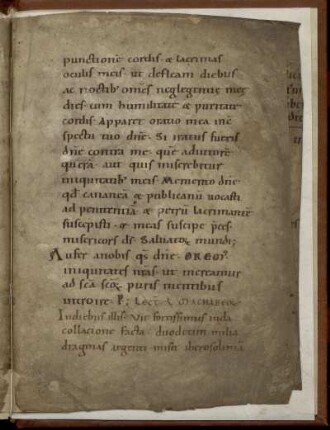 punctione cordis & lacrimas
oculis meis ut defleam diebus
ac noctib' om̄es neglegentias meas
dies cum humilitate & puritate
cordis Apparet oratio mea inc̄
spectu tuo dn̄e. Si iratus fueris
dn̄e contra me que adiutore
querā aut quis miserebitur
iniquitatib' meis Memento dn̄e
qd̄ cananeā & publicanū vocasti
ad penitentiā & petrū lacrimante
suscepisti & meas suscipe pces
misericors ds̄ Saluator mundi;
Aufer anobis qs̄ dn̄e OREM'.
iniquitates nr̄as ut mereamur
ad sc̄a sc̄oꝝ puris mentibus
introire. P; Lect. Machabeoꝝ
Indiebus illis. Vir fortissimus iuda
collatione facta duodecim milia
dragmas argenti misit iherosolimā